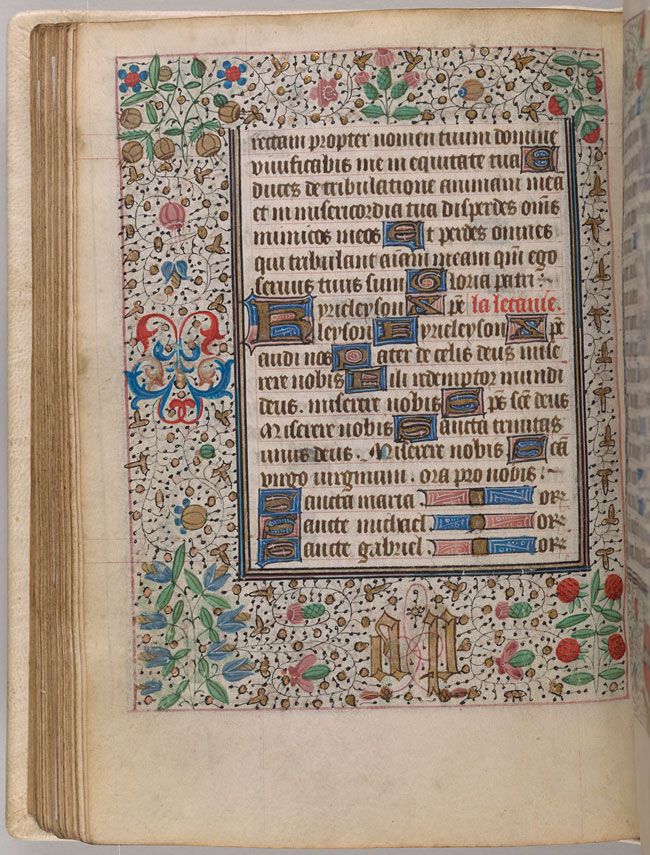 rectam propter nomen tuum domine
vivificabis me in equitate tua E
duces de tribulatione animam mea
et in misericordia tua disperdes om̅s
inimicos meos Et perdes omnes
qui tribulant ai̅am meam qm̅ ego
servus tuus sum Gloria patri :
Kyrieleyson Xp̅e la letanie.
leyson Kyrieleyson Xp̅e
audi nos Pater de celis deus mise
rere nobis Fili redemptor mundi
deus. miserere nobis Sp̅s sc̅e deus
Miserere nobis Sancta trinitas
unus deus. Miserere nobis Sc̅a
virgo virginum. ora pro nobis
Sancta maria or
Sancte michael or
Sancte gabriel or